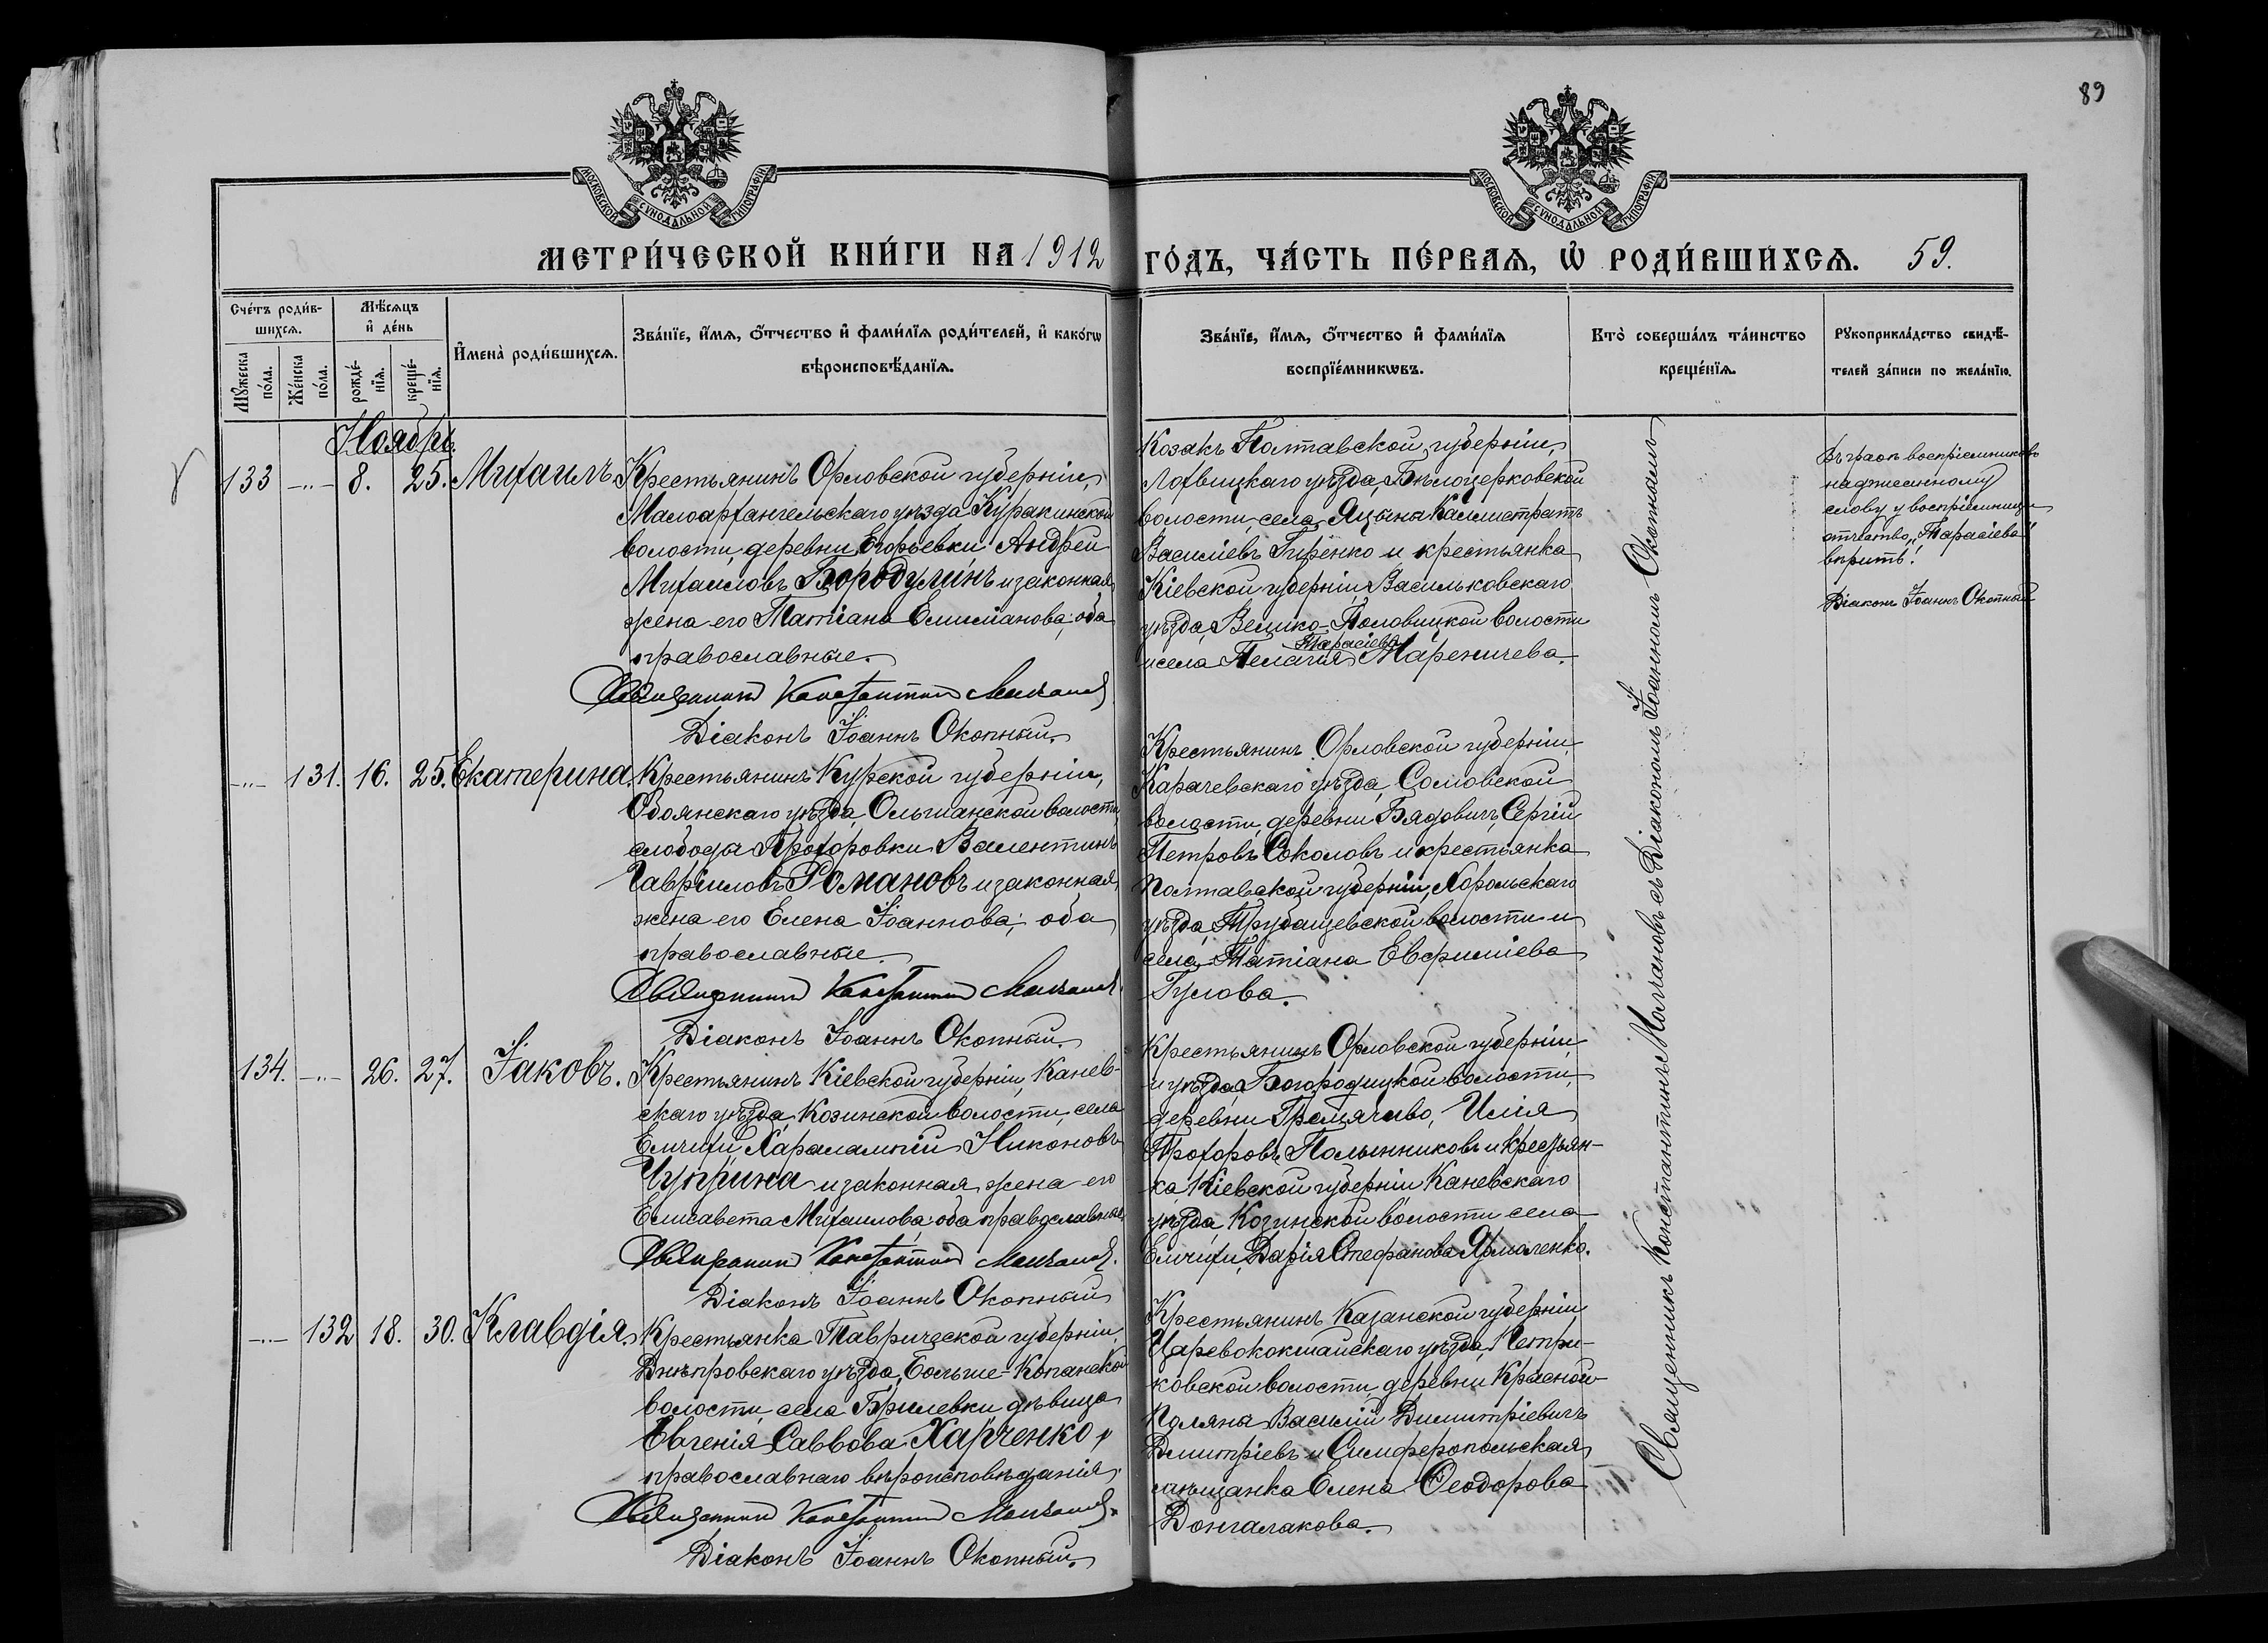 89
МОСКОВСКОЙ СУНОДАЛЬНОЙ ТИПОГРАФІИ
МОСКОВСКОЙ СУНОДАЛЬНОЙ ТИПОГРАФІИ
МЕТРИ́ЧЕСКОЙ КНИ́ГИ НА 1912
ГО́ДЪ, ЧА́СТЬ ПЕ́РВАѦ, Ѽ РОДИ́ВШИХСѦ. 59.
Сче́тъ роди́в-
шихсѧ.
Мꙋжеска по́ла.
Же́нска по́ла.
Мѣ́сѧцъ
и҆ де́нь
рожде́-
нїѧ.
креще́-
нїѧ.
И҆мена̀ роди́вшихсѧ.
Зва́нїе, и҆́мѧ, ѻ҆́тчество и҆ фами́лїѧ роди́телей, и҆ како́гѡ
вѣроисповѣ́данїѧ.
Зва́нїе, и҆́мѧ, ѻ҆́тчество и҆ фами́лїѧ
воспрїе́мникѡвъ.
Кто̀ соверша́лъ та́инство
креще́нїѧ.
Рꙋкоприкла́дство свидѣ́-
телей за́писи по жела́нїю.
Ноябрь
133 -"- 8. 25. Михаилъ
Крестьянинъ Орловской губерніи,
Малоархангельскаго уѣзда Куракинской
волости, деревни Егорьевки Андрей
Михаиловъ Бородулинъ и законная
жена его Татіана Емиліанова; оба
православные.
Священникъ Константинъ Молчановъ
Діаконъ Іоаннъ Окопный.
Козакъ Полтавской губерніи,
Лохвицкаго уѣзда, Бѣлоцерковской
волости, села Яцыны Каллистратъ
Василіевъ Гиренко и крестьянка
Кіевской губерніи, Васильковскаго
уѣзда, Велико-Половицкой волости
Тарасіева
и села Пелагія Мареничева.
Въ графѣ воспріемниковъ
надписанному
слову у воспріемницы
отчество „Тарасіева"
вѣрить.
Діаконъ Іоаннъ Окопный
-"- 131. 16. 25. Екатерина.
Крестьянинъ Курской губерніи,
Обоянскаго уѣзда, Ольшанской волости
слободы Прохоровки Валентинъ
Гавріиловъ Романовъ и законная
жена его Елена Іоаннова; оба
православные.
Священникъ Константинъ Молчановъ
Діаконъ Іоаннъ Окопный.
Крестьянинъ Орловской губерніи
Карачевскаго уѣзда, Сомовской
волости, деревни Бядовичъ, Сергій
Петровъ Соколовъ и крестьянка
Полтавской губерніи, Хорольскаго
уѣзда, Трубащевской волости и
села Татіана Евфиміева
Гулова.
134. -"- 26. 27. Іаковъ.
Крестьянинъ Кіевской губерніи, Канев-
скаго уѣзда, Козинской волости, села
Емчихи, Харалампій Никоновъ
Чуприна и законная жена его
Елисавета Михаилова; оба православные
Священникъ Константинъ Молчановъ.
Діаконъ Іоаннъ Окопный
Крестьянинъ Орловской губерніи
и уѣзда, Богородицкой волости,
деревни Гремячиво, Илія
Прохоровъ Полынниковъ и крестьян-
ка Кіевской губерніи Каневскаго
уѣзда, Козинской волости села
Емчихи, Дарія Стефанова Ярмоленко.
-"- 132 18. 30. Клавдія.
Крестьянка Таврической губерніи
Днѣпровскаго уѣзда, Больше-Копанской
волости, села Брилевки дѣвица
Евгенія Саввова Харченко,
православнаго вѣроисповѣданія.
Священникъ Константинъ Молчановъ.
Діаконъ Іоаннъ Окопный.
Крестьянинъ Казанской губерніи
Царевококшайскаго уѣзда, Петри-
ковской волости, деревни Красной
Поляны Василій Димитріевичъ
Дмитріевъ и Симферопольская
мѣщанка Елена Ѳеодорова
Донгалакова.
Священникъ Константинъ Молчановъ съ Діакономъ Іоанномъ Окопнымъ